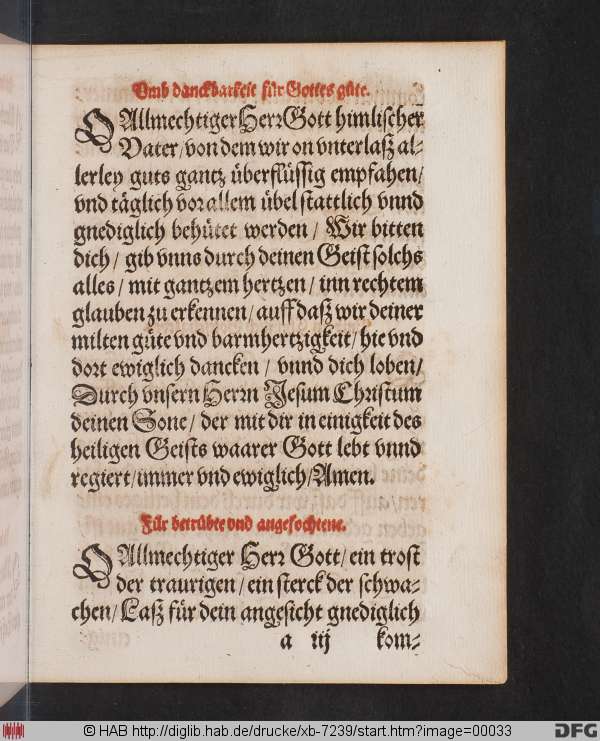 Vmb danckbarkeit für Gottes güte.
O Allmechtiger Herr Gott himlischer
Vater / von dem wir on vnterlaß al-
lerley guts gantz überflüssig empfahen /
vnd täglich vor allem übel stattlich vnnd
gnediglich behütet werden / Wir bitten
dich / gib vnns durch deinen Geist solchs
alles / mit gantzem hertzen / inn rechtem
glauben zu erkennen / auff daß wir deiner
milten güte vnd barmhertzigkeit / hie vnd
dort ewiglich dancken / vnnd dich loben /
Durch vnsern Herrn Jesum Christum
deinen Sone / der mit dir in einigkeit des
heiligen Geists waarer Gott lebt vnnd
regiert / immer vnd ewiglich / Amen.
Für betrübte vnd angefochtene.
O Allmechtiger Herr Gott / ein trost
der traurigen / ein sterck der schwa-
chen / Laß für dein angesicht gnediglich
a iij kom-
© HAB http://diglib.hab.de/drucke/xb-7239/start.htm?image=00033
DFG